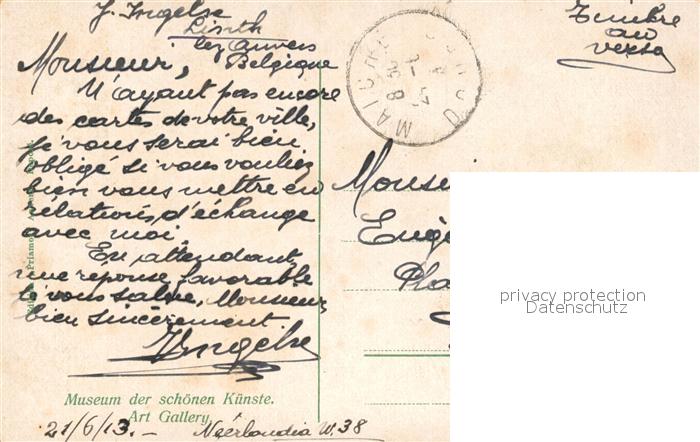 J. Ingelse
Lierth
lez Anvers
Belgique
Timbre
au
verso
Monsieur,
N'ayant pas encore
des cartes de votre ville,
je vous serai bien
obligé si vous vouliez
bien vous mettre en
rélations d'échange
avec moi.
En attendant
une réponse favorable
je vous salue, Monsieur,
bien sincèrement
JIngelse
MAICHE DOUBS
8 30
Monsi
Eugè
Pla
privacy protection
Datenschutz
Museum der schönen Künste.
Art Gallery
21/6/13.- Néerlandia W.38